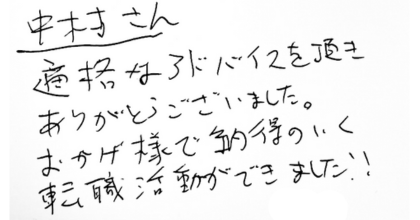 中村さん
適格なアドバイスを頂き
ありがとうございました。
おかげ様で納得のいく
転職活動ができました!!